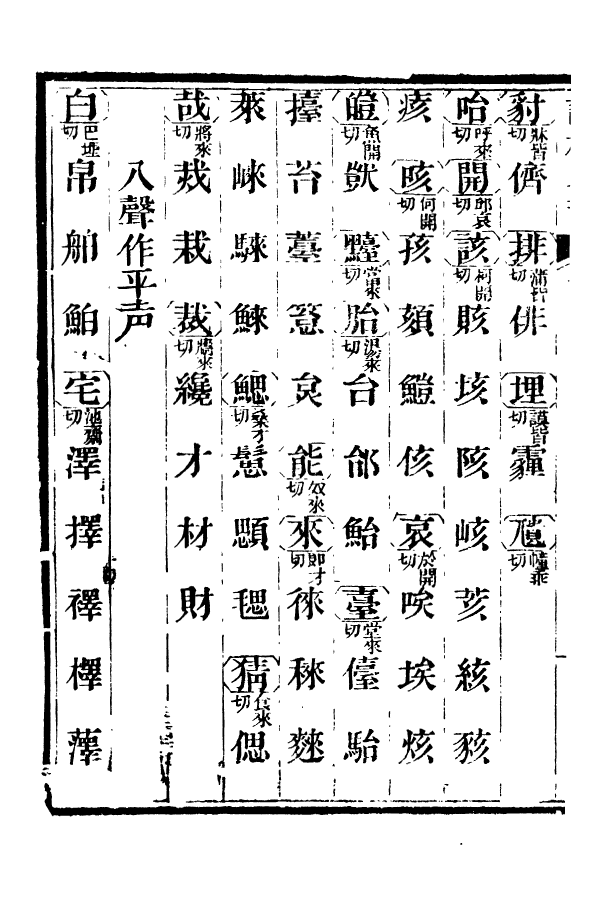 豺牀皆切儕排蒲皆切俳埋謨皆切霾尵幢乖切
咍呼來切開邱哀切該柯開切賅垓陔峐荄絯豥
痎咳何開切孩頦䲒侅哀於開切唉埃烗
皚魚開切獃𪒴當來切胎湯來切台邰鮐臺堂來切儓駘
擡苔薹籉炱能奴來切來郎才切徠秾䅘
萊崍騋鯠鰓桑才切顋毸猜倉來切偲
哉將來切烖栽裁牆來切纔才材財
入聲作平声
白巴埋切帛舶鮊宅池齋切澤擇襗檡蘀